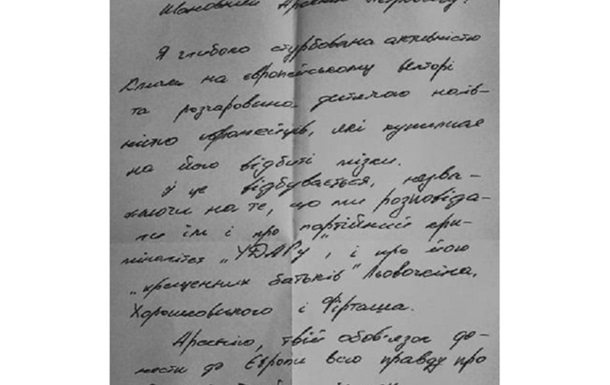 Шановний Арсенію Петровичу!
Я глибоко стурбована активністю
Кличка на європейському векторі
та розчарована дитячою наїв-
ністю європейців, які купилися
на його відбиті мізки.
І це відбувається, незва-
жаючи на те, що ми розповіда-
ли їм і про партійний кри-
міналітет „УДАРу", і про його
„хрещенних батьків" Льовочкіна,
Хорошковського і Фірташа.
Арсенію, твій обов'язок до-
нести до Європи всю правду про